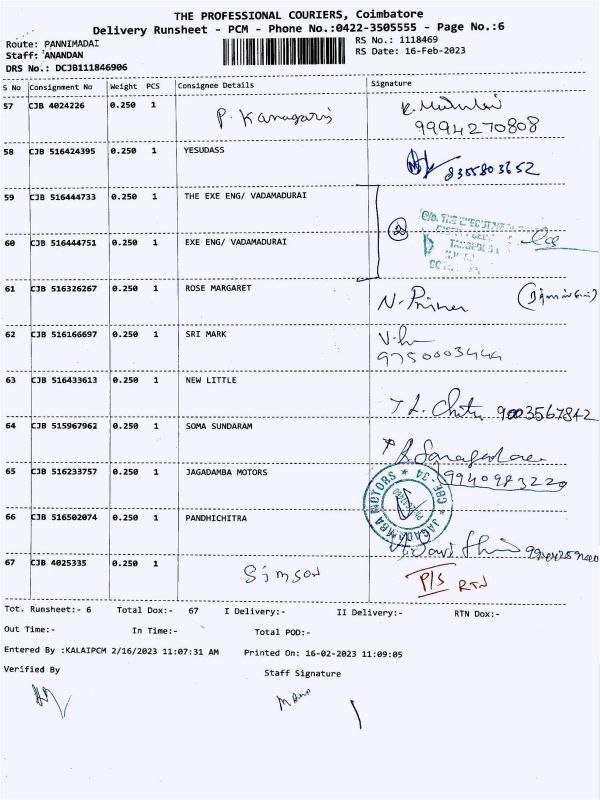 THE PROFESSIONAL COURIERS, Coimbatore
Delivery Runsheet - PCM - Phone No.:0422-3505555 - Page No.:6
Route: PANNIMADAI
RS No.: 1118469
Staff: ANANDAN
RS Date: 16-Feb-2023
DRS No.: DCJB111846906
S No Consignment No Weight PCS Consignee Details Signature
57 CJB 4024226 0.250 1 P. Kanagaraj
9994270808
58 CJB 516424395 0.250 1 YESUDASS 8355803652
59 CJB 516444733 0.250 1 THE EXE ENG/ VADAMADURAI
60 CJB 516444751 0.250 1 EXE ENG/ VADAMADURAI
2
61 CJB 516326267 0.250 1 ROSE MARGARET
62 CJB 516166697 0.250 1 SRI MARK
9750003444
63 CJB 516433613 0.250 1 NEW LITTLE
9003567842
64 CJB 515967962 0.250 1 SOMA SUNDARAM
65 CJB 516233757 0.250 1 JAGADAMBA MOTORS 9940983220
JAGADAMBA MOTORS * CBE-34 *
66 CJB 516502074 0.250 1 PANDHICHITRA
67 CJB 4025335 0.250 1 Simson P/S RTN
Tot. Runsheet:- 6 Total Dox:- 67 I Delivery:- II Delivery:- RTN Dox:-
Out Time:- In Time:- Total POD:-
Entered By :KALAIPCM 2/16/2023 11:07:31 AM Printed On: 16-02-2023 11:09:05
Verified By Staff Signature